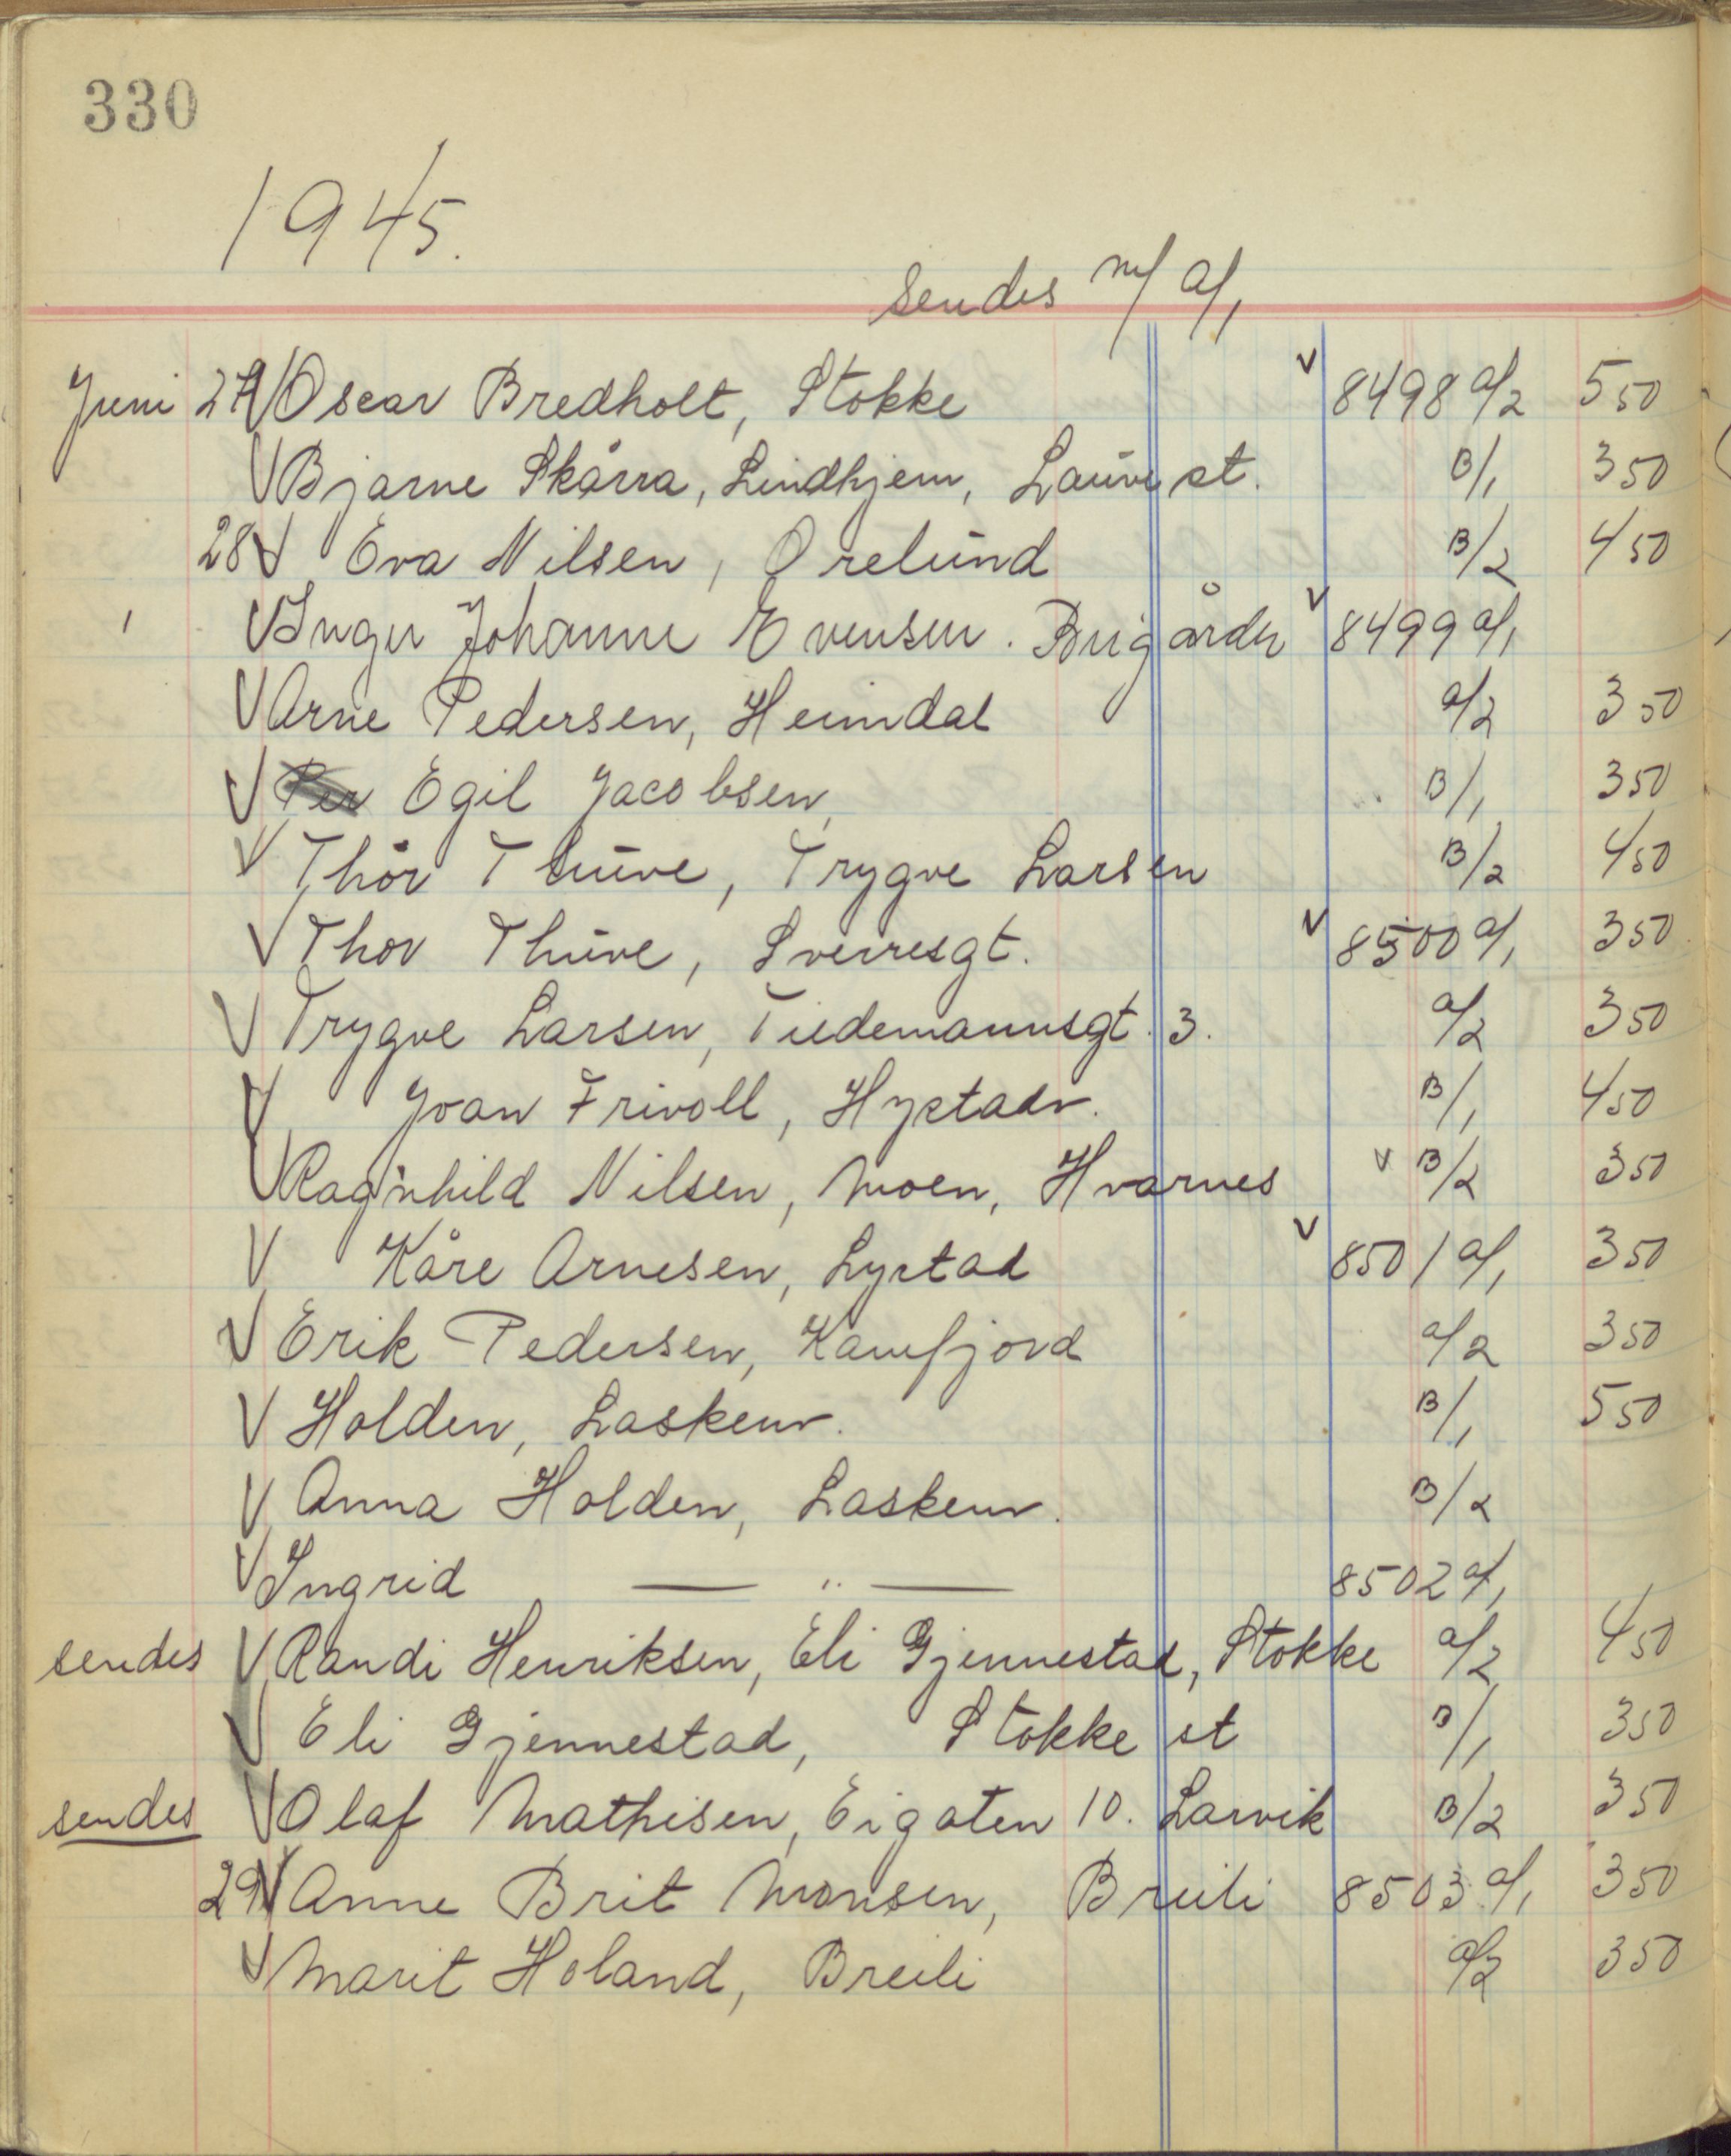 330
1945.
Sendes m/ a/1
Juni 27 V Oscar Bredholt, Stokke V 8498 a/2 5 50
V Bjarne Skårra, Lindhjem, Lauve st. B/1 3 50
28 V Eva Nilsen, Orelund B/2 4 50
V Inger Johanne Evensen. V 8499 a/1
V Arne Pedersen, Heimdal a/2 3 50
V Per Egil Jacobsen, B/1 3 50
V Thor Thuve, Trygve Larsen B/2 4 50
V Thor Thuve, Sverresgt. V 8500 a/1 3 50
V Trygve Larsen, Tiedemannsgt. 3. a/2 3 50
V Joan Frivoll, Hystadv. B/1 4 50
V Ragnhild Nilsen, Moen, Hvarnes V B/2 3 50
V Kåre Arnesen, Lystad V 8501 a/1 3 50
V Erik Pedersen, Kamfjord a/2 3 50
V Holden, Laskenv. B/1 5 50
V Anna Holden, Laskenv. B/2
V Ingrid — " — 8502 a/1
sendes V Randi Henriksen, Eli Gjennestad, Stokke a/2 4 50
V Eli Gjennestad, Stokke st B/1 3 50
sendes V Olaf Mathisen, Eigaten 10. Larvik B/2 3 50
29 V Anne Brit Monsen, Breili 8503 a/1 3 50
V Marit Holand, Breili a/2 3 50